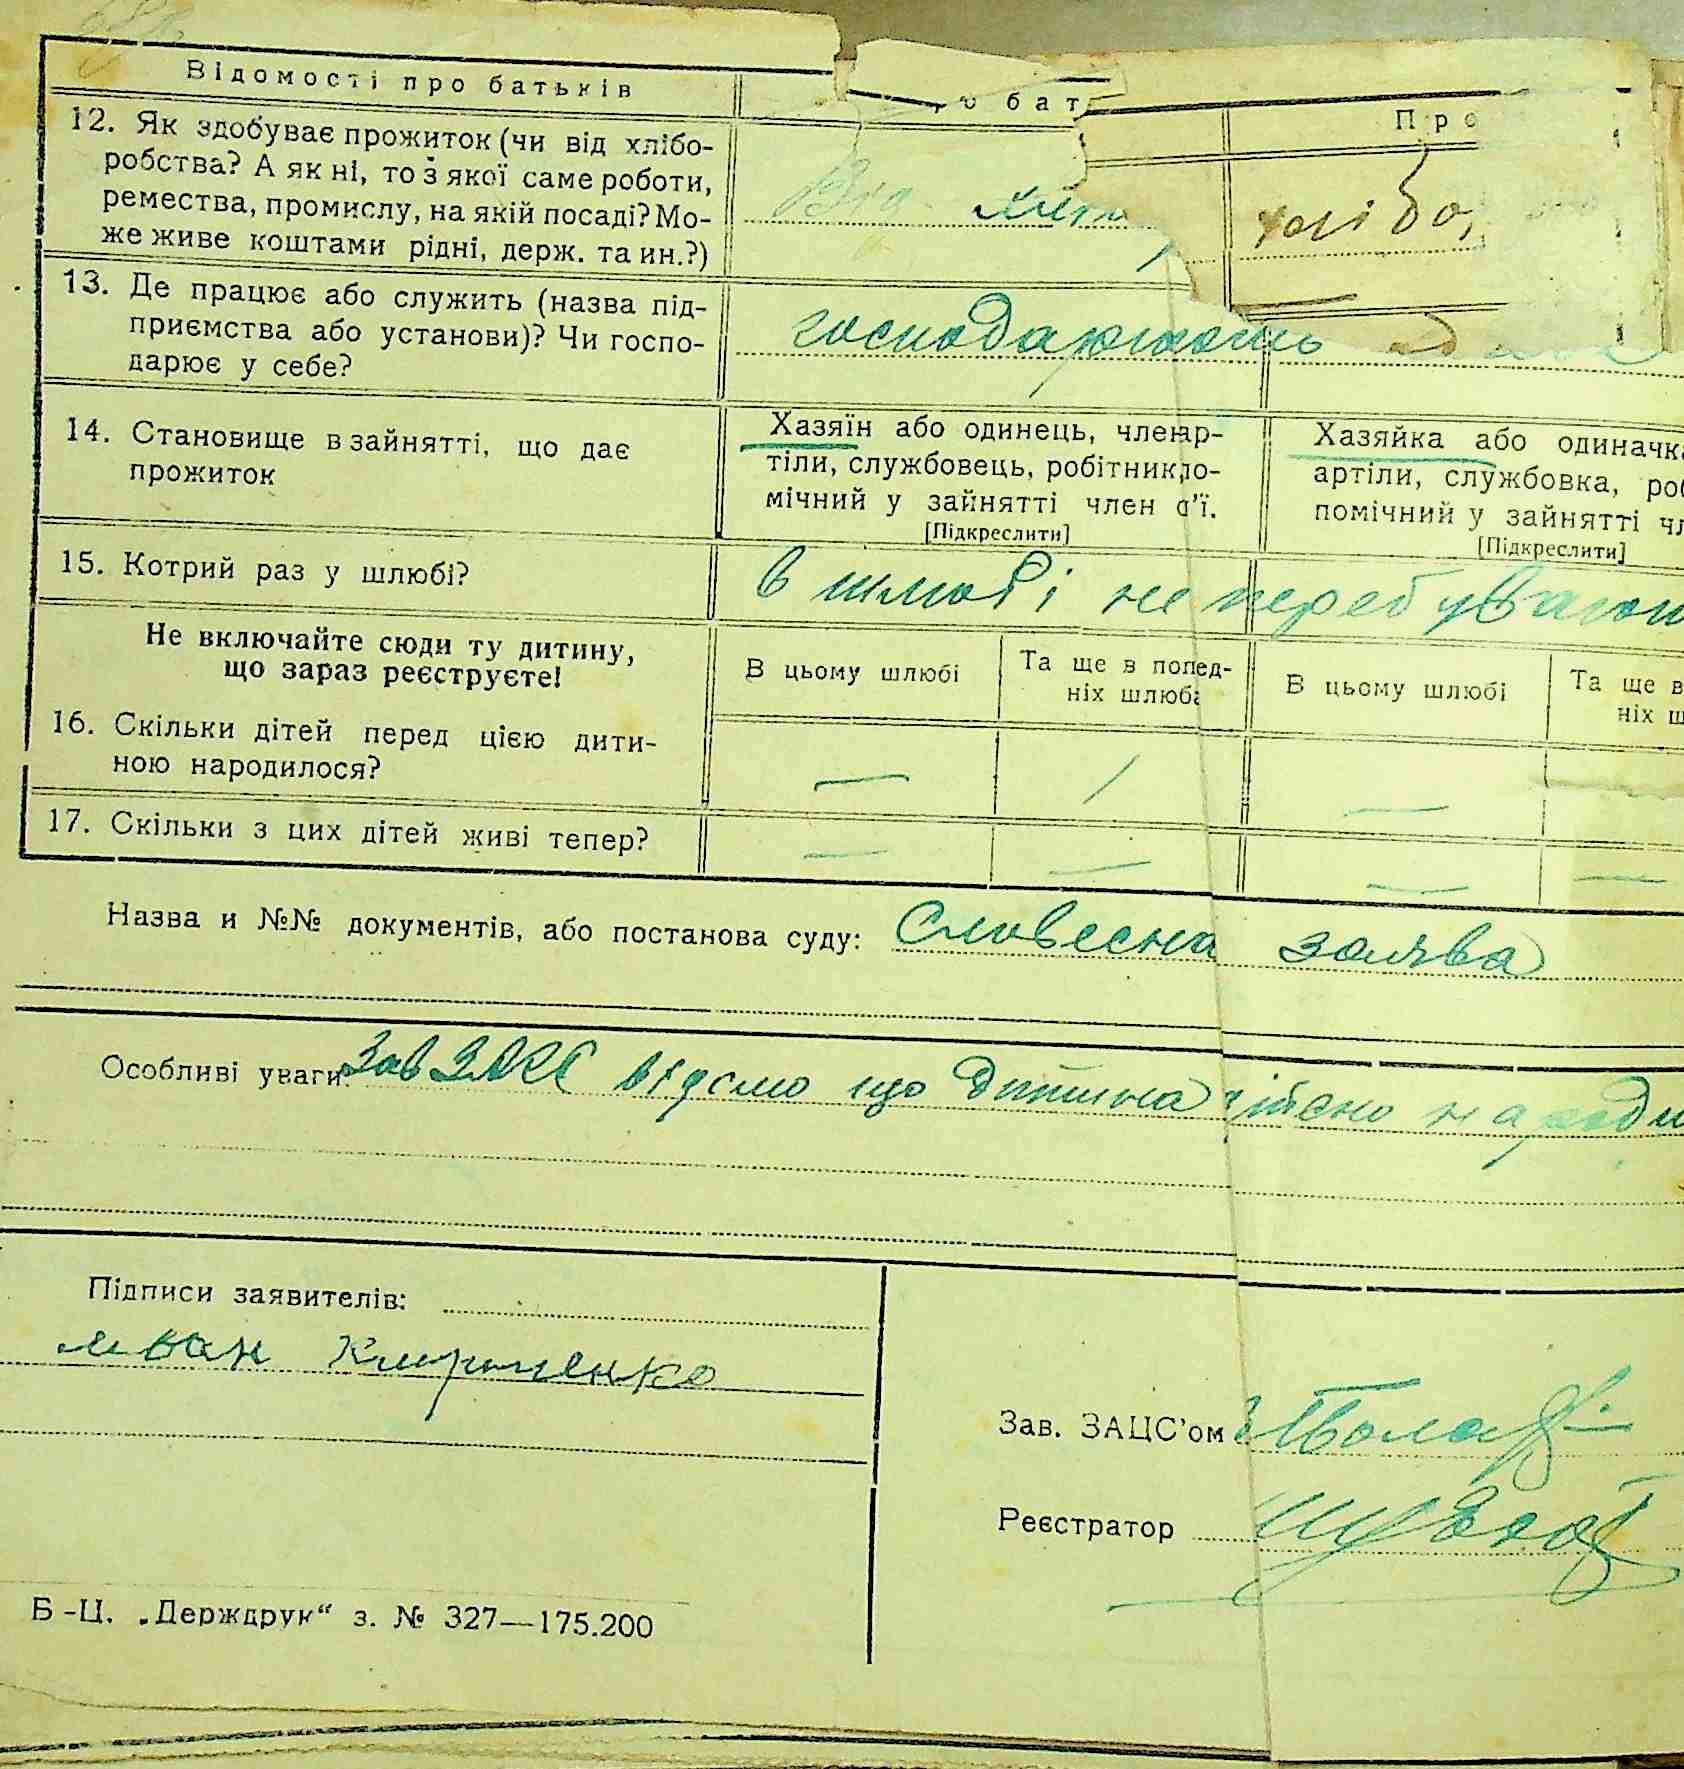 Відомості про батьків
ро бат
Про
12. Як здобуває прожиток (чи від хлібо-
робства? А як ні, то з якої саме роботи,
ремества, промислу, на якій посаді? Мо-
же живе коштами рідні, держ. та ин.?)
Від
13. Де працює або служить (назва під-
приємства або установи)? Чи госпо-
дарює у себе?
господарюють
14. Становище в зайнятті, що дає
прожиток
Хазяїн або одинець, член ар-
тіли, службовець, робітник, по-
мічний у зайнятті член с'ї.
[Підкреслити]
Хазяйка або одиначка
артіли, службовка, роб
помічний у зайнятті чл
[Підкреслити]
15. Котрий раз у шлюбі?
в шлюбі не перебувають
Не включайте сюди ту дитину,
що зараз реєструєте!
В цьому шлюбі
Та ще в попед-
ніх шлюба
В цьому шлюбі
Та ще в
ніх ш
16. Скільки дітей перед цією дити-
ною народилося?
— / —
17. Скільки з цих дітей живі тепер?
— — — —
Назва и №№ документів, або постанова суду: Словесна заява
Особливі уваги: Зав ЗАГС відомо що дитина дійсно народи
Підписи заявителів:
иван Кириченко
Зав. ЗАЦС'ом
Реєстратор
Б-Ц. „Держдрук“ з. № 327—175.200